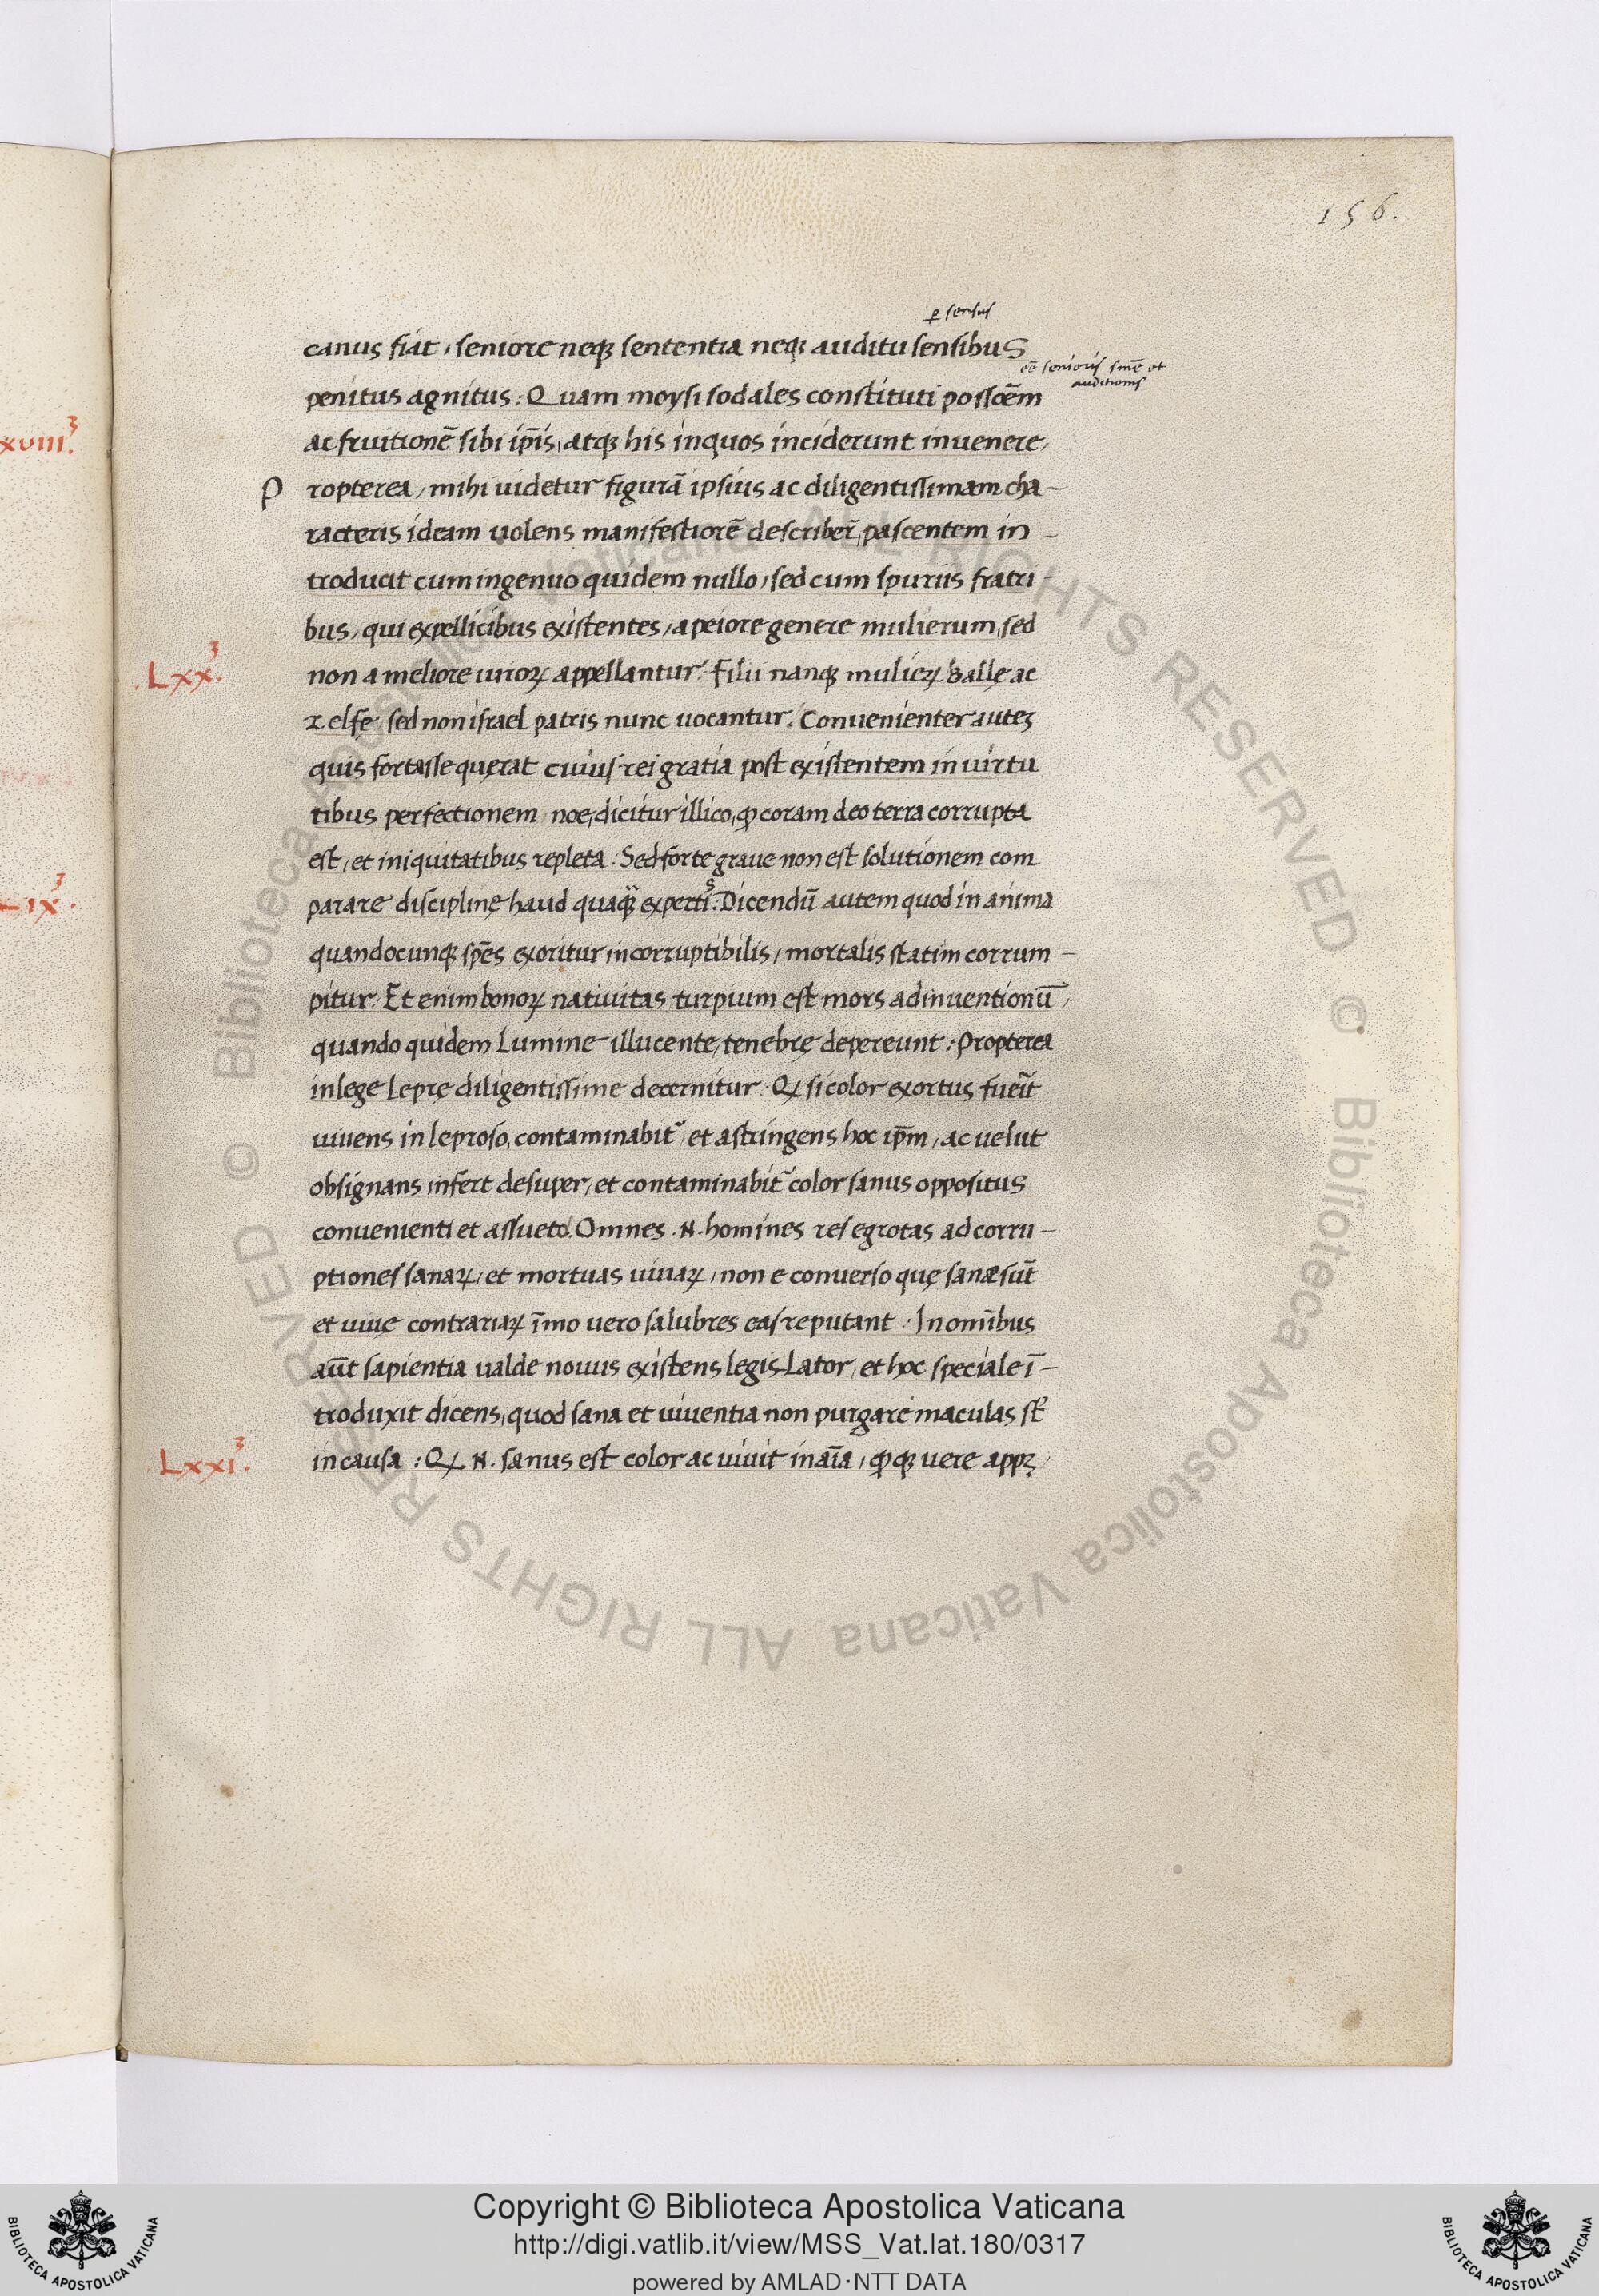 156.
ꝑ sensus
canus fiat, seniore neqꝫ sententia neqꝫ auditu sensibus
eē senioris sniē et
auditionis
penitus agnitus: Quam moysi sodales constituti possēm
ac fruitionē sibi ip̄is, atqꝫ his inquos inciderunt inuenere,
xviii.3
P ropterea, mihi uidetur figurā ipsius ac diligentissimam cha-
racteris ideam uolens manifestiorē describer̄, pascentem in-
troducit cum ingenuo quidem nullo, sed cum spuriis fratri-
bus, qui ex pellicibus existentes, a peiore genere mulierum, sed
.Lxx.3
non a meliore uiroꝝ appellantur. Filii nanqꝫ mulieꝝ ballę ac
zelfę, sed non israel patris nunc uocantur. Conuenienter auteꝫ
quis fortasse quęrat cuius rei gratia post existentem in uirtu
tibus perfectionem, noe, dicitur illico, ꝙ coram deo terra corrupta
est, et iniquitatibus repleta: Sed forte graue non est solutionem com
Lix.3
parare disciplinę haud quaqꝫ expertis: Dicendū autem quod in anima
quandocunqꝫ sp̄es exoritur incorruptibilis, mortalis statim corrum-
pitur. Et enim bonoꝝ natiuitas turpium est mors adinuentionū,
quando quidem Lumine illucente, tenebrę depereunt: Propterea
in lege Leprę diligentissime decernitur. Qꝫ si color exortus fuer̄it
uiuens in leproso, contaminabit᷑, et astringens hoc ip̄m, ac uelut
obsignans infert desuper, et contaminabit᷑ color sanus oppositus
conuenienti et assueto. Omnes .N. homines res egrotas ad corru-
ptiones sanaꝝ, et mortuas uiuaꝝ, non e conuerso quę sanæ sūt
et uiuę contrariaꝝ īmo uero salubres eas reputant: In omībus
aūt sapientia ualde nouus existens legis Lator, et hoc speciale ī-
troduxit dicens, quod sana et uiuentia non purgare maculas st̄
.Lxxi.3
in causa: Qꝫ .N. sanus est color ac uiuit in aīa, ꝙqꝫ uere appꝫ,
© Biblioteca Apostolica Vaticana ALL RIGHTS RESERVED © Biblioteca Apostolica Vaticana ALL RIGHTS RESERVED
BIBLIOTECA APOSTOLICA VATICANA
Copyright © Biblioteca Apostolica Vaticana
http://digi.vatlib.it/view/MSS_Vat.lat.180/0317
powered by AMLAD·NTT DATA
BIBLIOTECA APOSTOLICA VATICANA